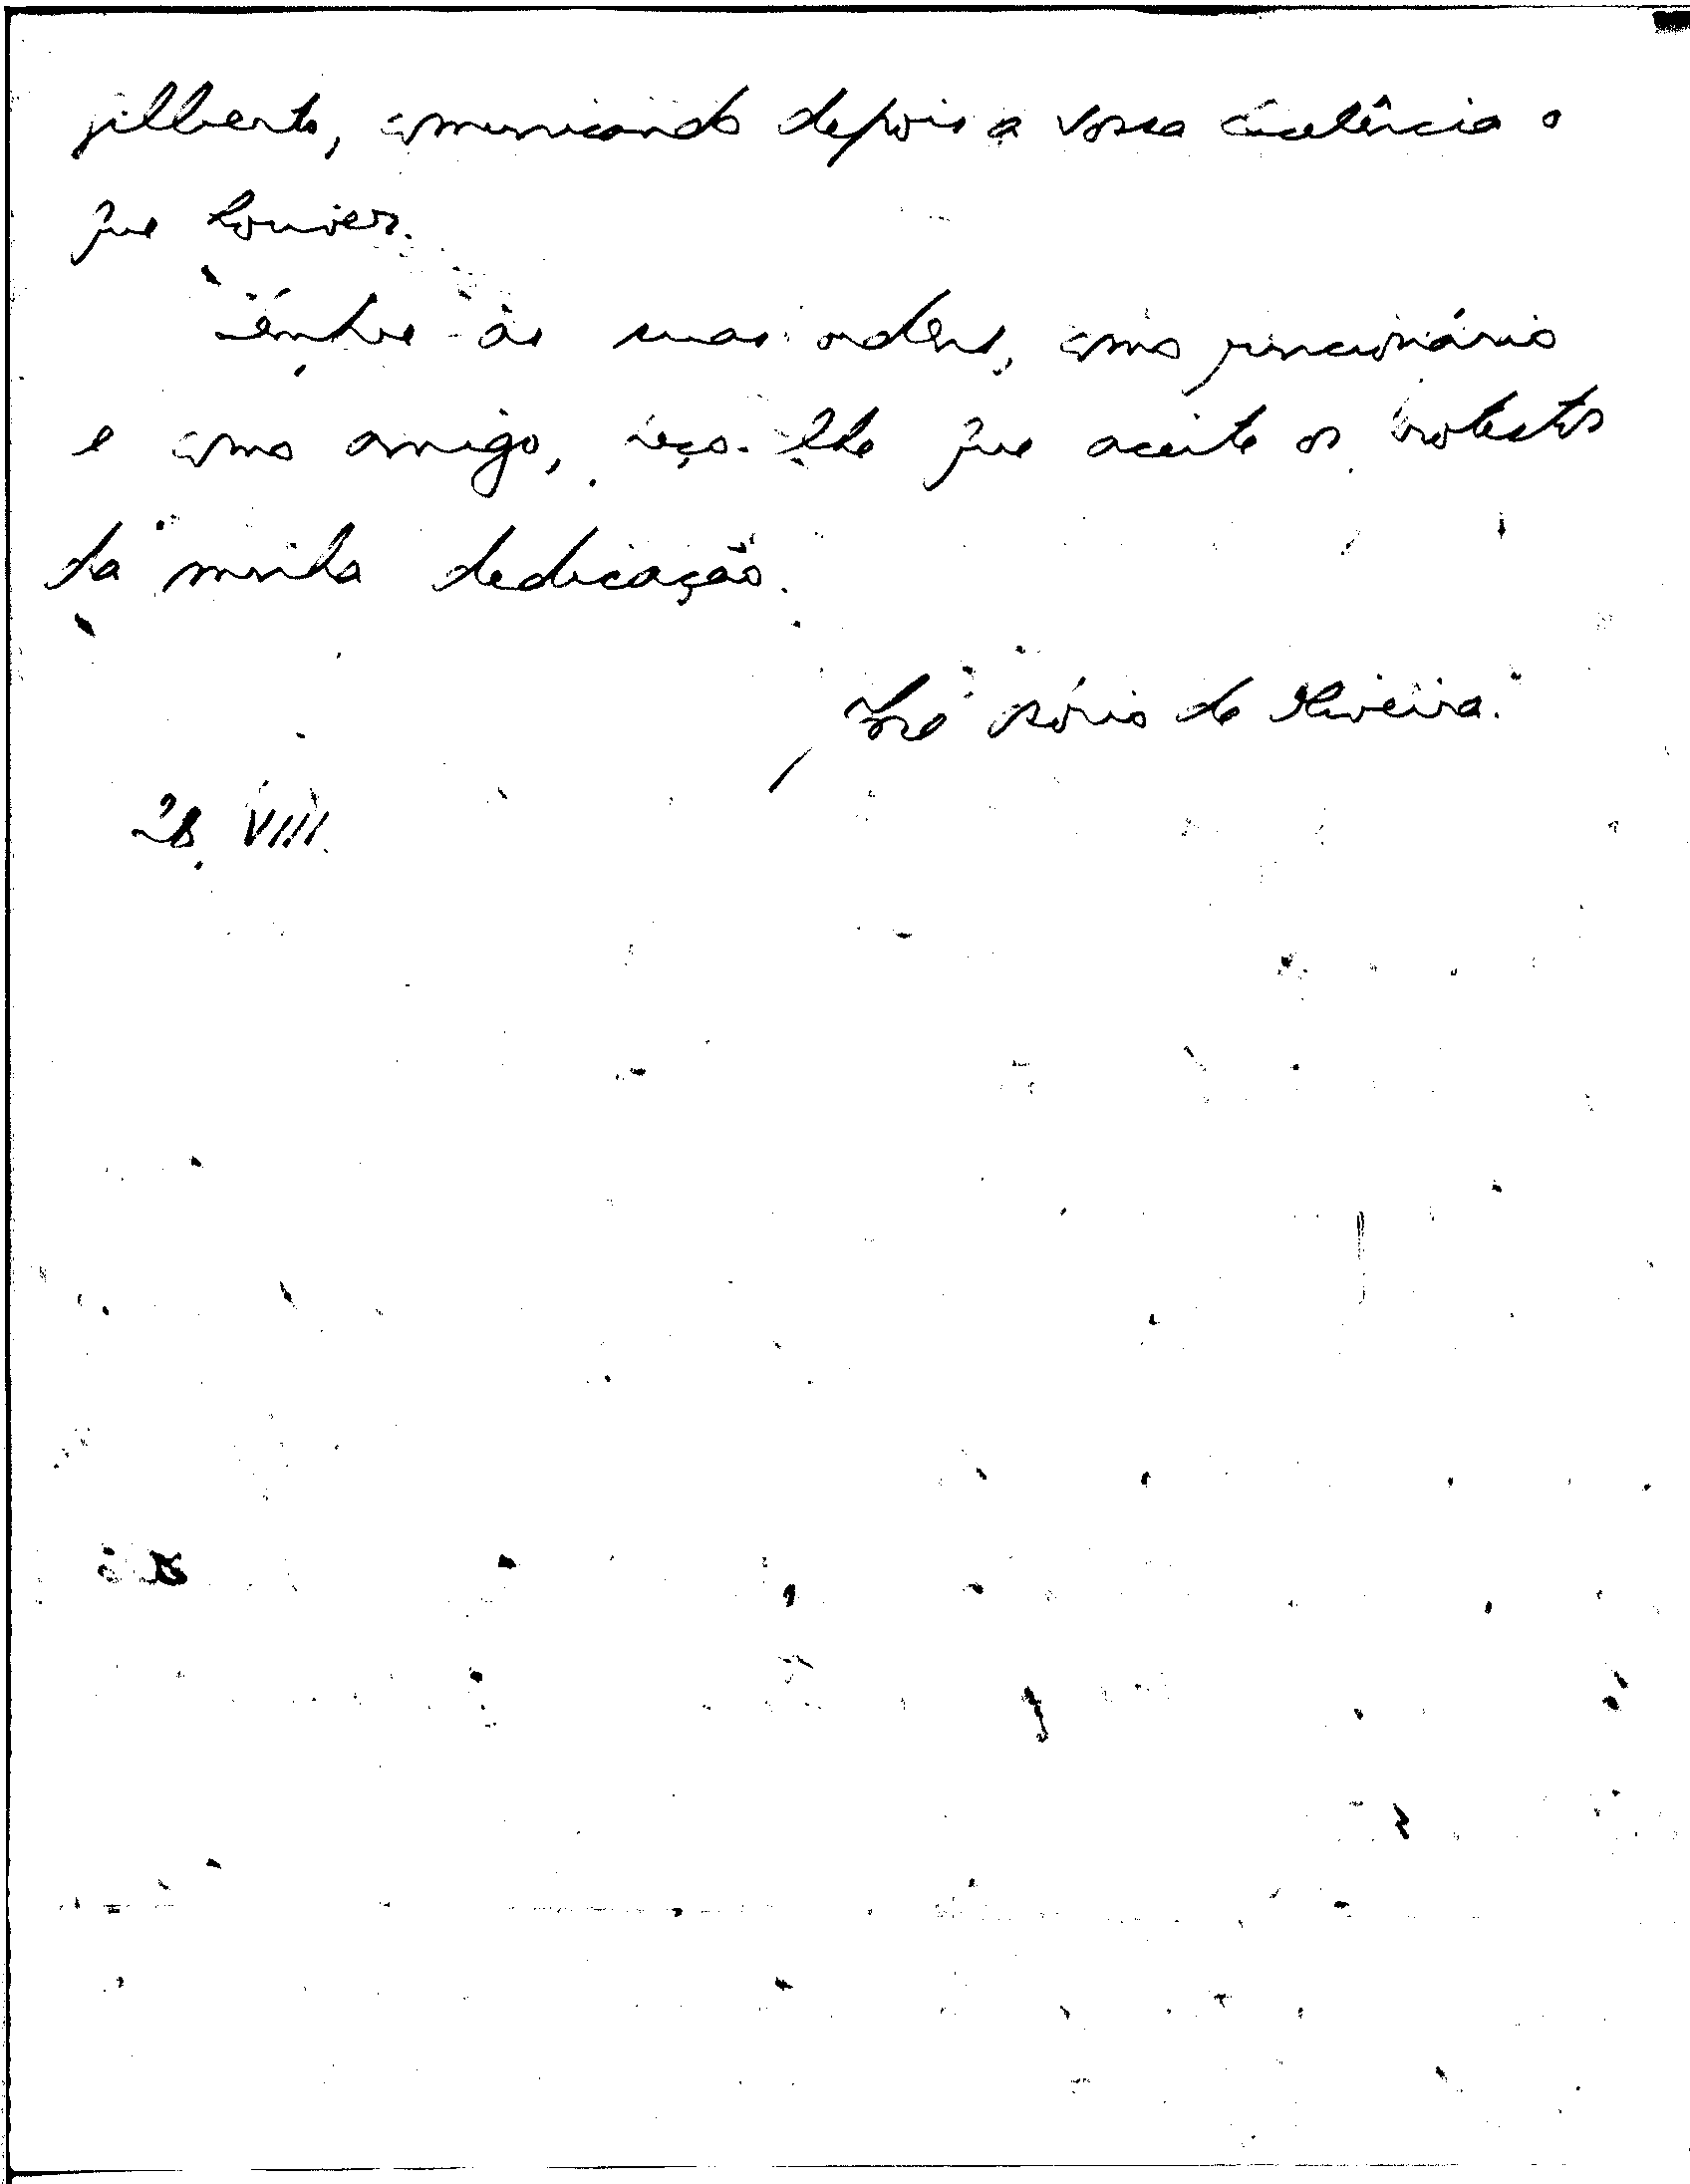 gilberto, comunicando depois a vossa excelência o
que houver.
Sempre às suas ordens, como funcionário
e como amigo, peço-lhe que aceite os protestos
da minha dedicação.
José Osório de Oliveira.
28. VIII.